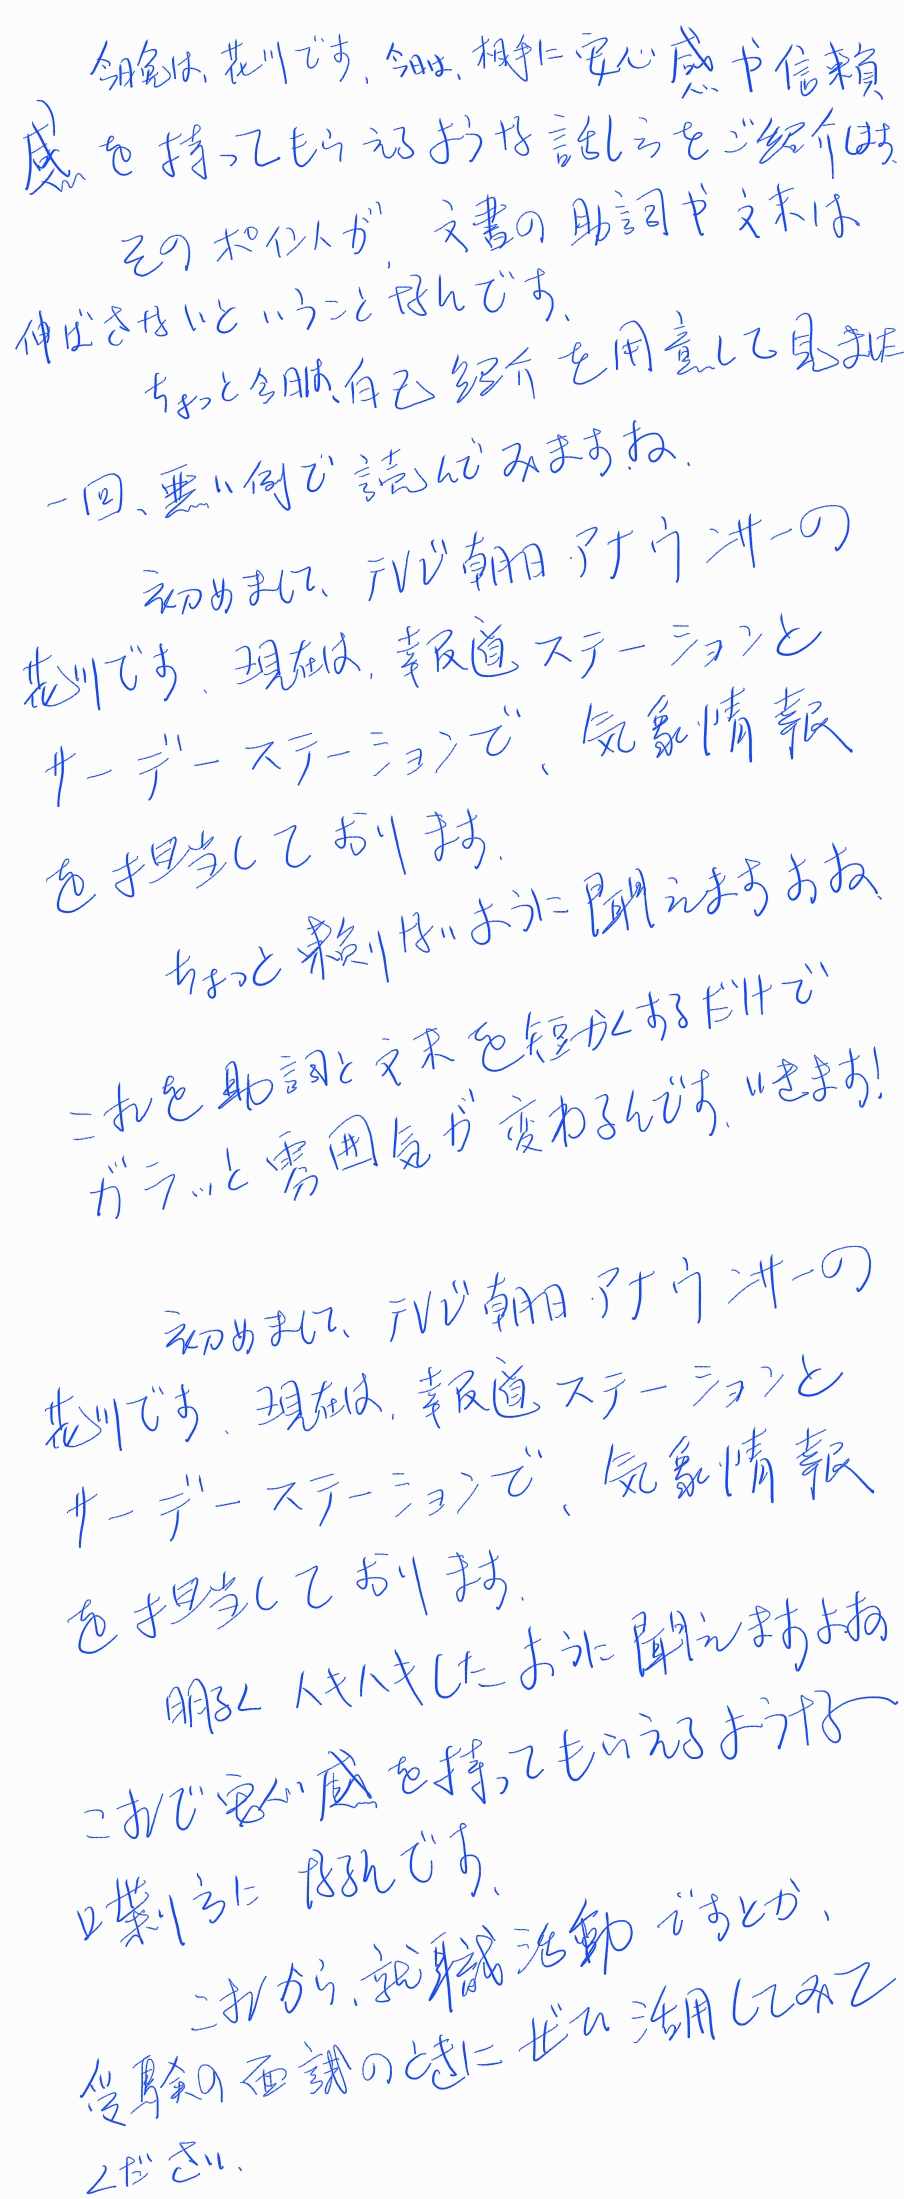 今晩は、花川です、今日は、相手に安心感や信頼
感を持ってもらえるような話し方をご紹介します、
そのポイントが、文書の助詞や文末は
伸ばさないということなんです、
ちょっと今日は、自己紹介を用意して見ました
一回、悪い例で読んでみますね、
初めまして、テレビ朝日アナウンサーの
花川です、現在は、報道ステーションと
サーデーステーションで、気象情報
を担当しております、
ちょっと頼りないように聞えますよね、
これを助詞と文末を短かくするだけで
ガラッと雰囲気が変わるんです、いきます!
初めまして、テレビ朝日アナウンサーの
花川です、現在は、報道ステーションと
サーデーステーションで、気象情報
を担当しております、
明るくハキハキしたように聞えますよね
これで安心感を持ってもらえるような
喋り方になるんです、
これから、就職活動ですとか、
受験の面談のときにぜひ活用してみて
ください、